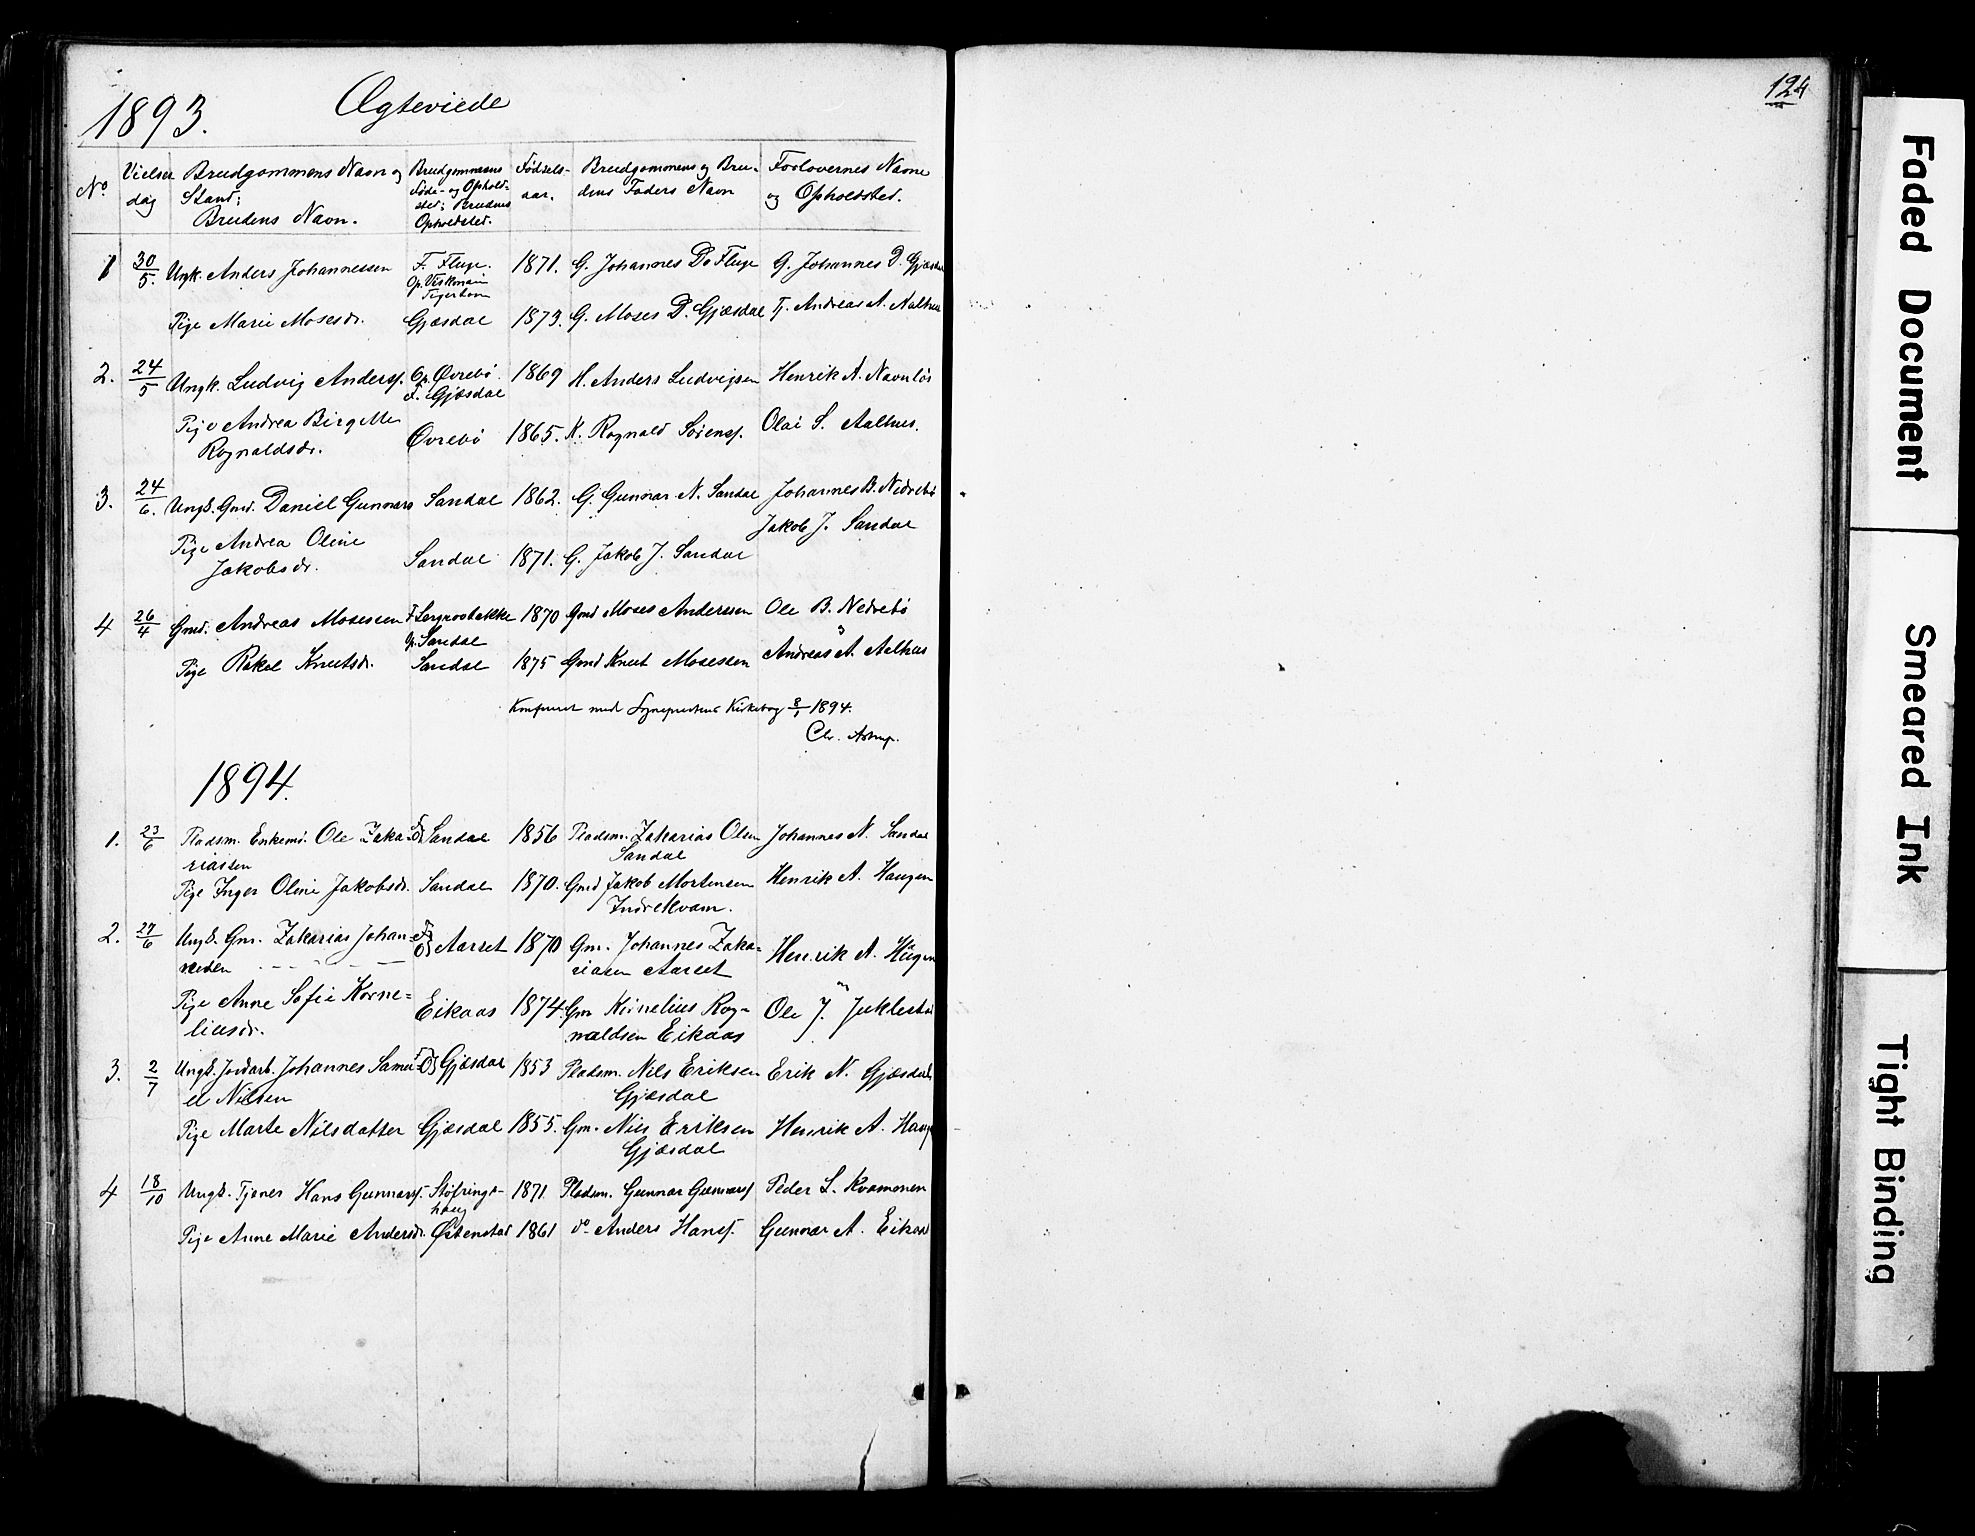 1893. Ægteviede
124
No Vielses dag Brudgommens Navn og Stand; Brudens Navn. Brudgommens Føde- og Opholdsted; Brudens Opholdsted. Fødselsaar. Brudgommens og Brudens Faders Navn Forlovernes Navne og Opholdsted.
1 30/5. Ungk. Anders Johannessen F. Fluge. Op. 1871. G. Johannes D Fluge G. Johannes D. Gjæsdal
Pige Marie Mosesdr. Gjæsdal 1873. G. Moses D. Gjæsdal Tj. Andreas A. Aalhus
2. 24/5 Ungk. Ludvig Anders. Op. Øvrebö. F. Gjæsdal 1869 H. Anders Ludvigsen Henrik A. Navnløs
Pige Andrea Birgitte Rognaldsdr. Øvrebö 1865. K. Rognald Sörens. Olai S. Aalhus.
3. 24/6. Ungk. Gmd. Daniel Gunnars Sandal 1862. G. Gunnar N. Sandal Johannes B. Nedrebö
Pige Andrea Oline Jakobsdr. Sandal 1871. G. Jakob J. Sandal Jakob J. Sandal
4 26/4 Gmd. Andreas Mosessen F Op. Sandal 1870 Gmd Moses Anderssen Ole B. Nedrebö
Pige Rakel Knutsdr. Sandal 1875 Gmd Knut Mosessen Andreas A. Aalhus
Konfereret med Sognepræstens Kirkebog 8/1 1894.
Chr. Astrup.
1894.
1. 23/6 Pladsm. Enkemd. Ole Zakariassen F. Og Sandal 1856 Pladsm. Zakarias Olsen Sandal Johannes N. Sandal
Pige Inger Oline Jakobsdr. Sandal 1870. Gmd Jakob Mortensen Indrekvam. Henrik A. Haugen
2. 27/6 Ungk. Gm. Zakarias Johannesen F. Og Aarset 1870 Gm. Johannes Zakariasen Aarset Henrik A. Haugen
Pige Anne Sofie Korneliusdr. Eikaas 1874. Gm Kornelius Rognaldsen Eikaas Ole J. Juklestad
3. 2/7 Ungk. Jordarb. Johannes Samuel Nilsen F. Og Gjæsdal 1853 Pladsm. Nils Eriksen Gjæsdal Erik N. Gjæsdal
Pige Marte Nilsdatter Gjæsdal 1855. Gm. Nils Eriksen Gjæsdal Henrik A. Haug
4 18/10 Ungk. Tjener Hans Gunnars. Støfringshaug 1871. Pladsm. Gunnar Gunnars Peder L. Kvamenen
Pige Anne Marie Andersdr. Østenstad 1861 do Anders Hans. Gunnar A. Eikaas
Faded Document
Smeared Ink
Tight Binding